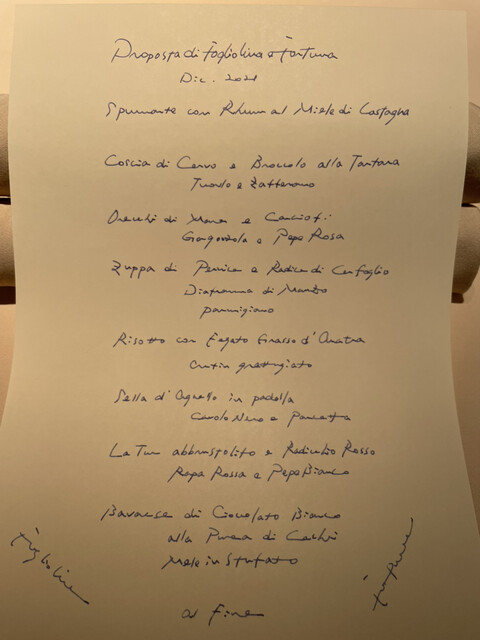 Proposta di Fogliolina e Fortuna
Dic. 2021
Spumante con Rhum al Miele di Castagna
Coscia di Cervo e Broccolo alla Tartara
Tuorlo e Zafferano
Orecchi di Mare e Carciofi
Gorgonzola e Pepe Rosa
Zuppa di Pernice e Radice di Cerfoglio
Diaframma di Manzo
parmigiano
Risotto con Fegato Grasso d'Anatra
grattugiato
Sella d'Agnello in padella
Cavolo Nero e Pancetta
La Tur abbrustolito e Radicchio Rosso
Rapa Rossa e Pepe Bianco
Bavarese di Cioccolato Bianco
alla Purea di Cachi
Mele in Stufato
Fogliolina
Fortuna
al fine